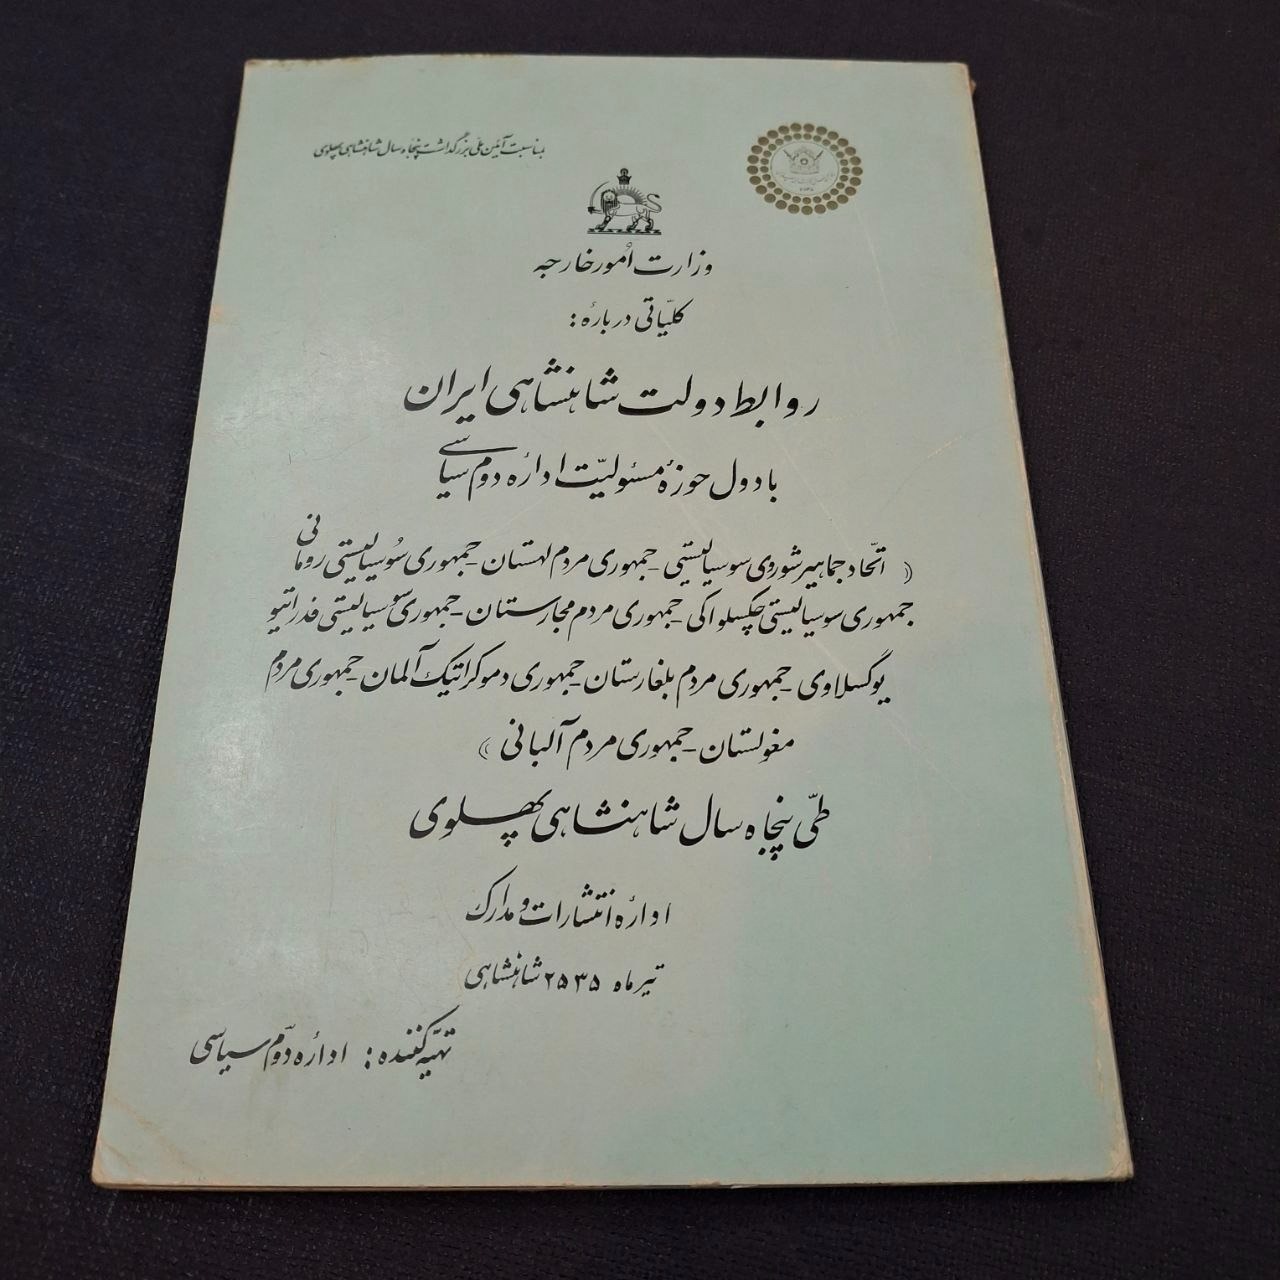 بمناسبت آئین ملی بزرگداشت پنجاه سال شاهنشاهی پهلوی
وزارت اُمور خارجه
کلیّاتی دربارهٔ :
روابط دولت شاهنشاهی ایران
با دول حوزهٔ مسئولیّت ادارهٔ دوم سیاسی
( اتّحاد جماهیر شوروی سوسیالیستی - جمهوری مردم لهستان - جمهوری سُوسیالیستی رومانی
جمهوری سوسیالیستی چکسلواکی - جمهوری مردم مجارستان - جمهوری سوسیالیستی فدراتیو
یوگسلاوی - جمهوری مردم بلغارستان - جمهوری دموکراتیک آلمان - جمهوری مردم
مغولستان - جمهوری مردم آلبانی )
طیّ پنجاه سال شاهنشاهی پهلوی
ادارهٔ انتشارات و مدارک
تیر ماه ۲۵۳۵ شاهنشاهی
تهیّه کننده : ادارهٔ دوّم سیاسی